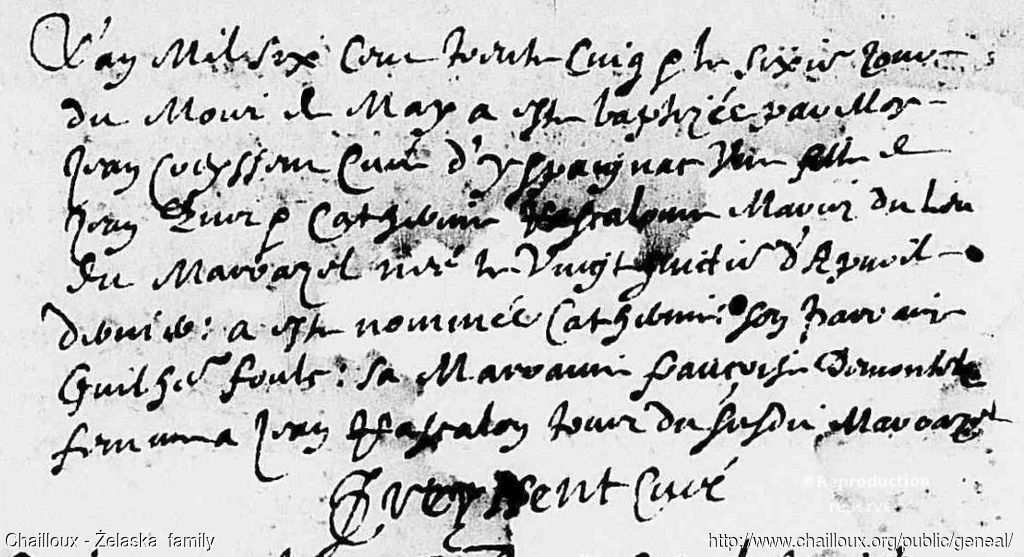 L'an Mil six Cens trente Cinq & le sixie Jour
du Mois de May a este baptizée par Moy
Jean Curé d'yspaignac Une fille de
Jean & Catherine Mariez du lieu
du Marvazel née le Vingt huictie d'Apvril
dernier: a este nommée Catherine: son Parrain
Guilhe fouls: sa Marraine françoise
femme a Jean tous du susdit Marvazel
Curé
© Reproduction
réservée
Chailloux - Żelaska family
http://www.chailloux.org/public/geneal/